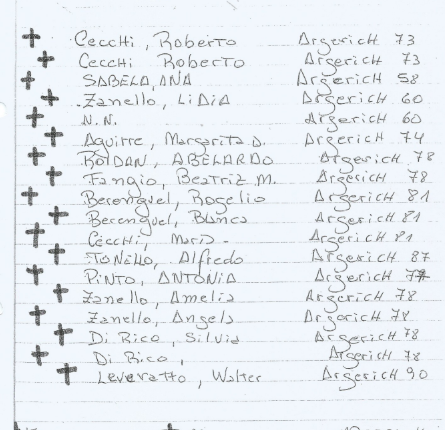 Cecchi, Roberto Argerich 73
Cecchi Roberto Argerich 73
SABELA, ANA Argerich 58
Zanello, LiDiA Argerich 60
N.N. Argerich 60
Aguirre, Margarita D. Argerich 74
ROLDAN, ABELARDO Argerich 78
Fangio, Beatriz M. Argerich 78
Berenguel, Rogelio Argerich 81
Berenguel, Blanca Argerich 81
Cecchi, Maria - Argerich 81
TONELLO, Alfredo Argerich 87
PiNTO, ANTONiA Argerich 77
Zanello, Amelia Argerich 78
Zanello, Angela Argerich 78
Di Rico, Silvia Argerich 78
Di Rico, Argerich 78
Leveratto, Walter Argerich 90